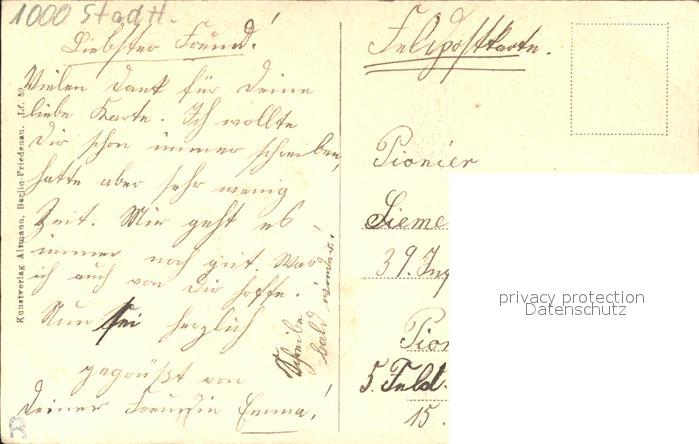 1000 Stadt
Liebster Freund!
Vielen Dank für Deine
liebe Karte. Ich wollte
Dir schon immer schreiben,
hatte aber sehr wenig
Zeit. Mir geht es
immer noch gut. Was
ich auch von Dir hoffe.
Nun sei herzlich
gegrüßt von
Deiner Freundin Emma!
Schreibe
bald wieder.
Kunstverlag Altmann, Berlin-Friedenau. Lf. 59
Feldpostkarte.
Pionier
Sieme
39. Inf
Pion
5. Feld.
15.
privacy protection
Datenschutz